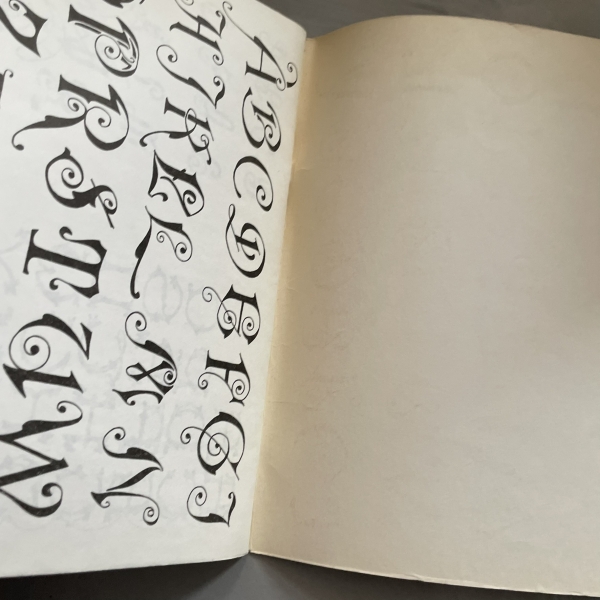 A B C D E F G J
H J K L M N
P R S T U W